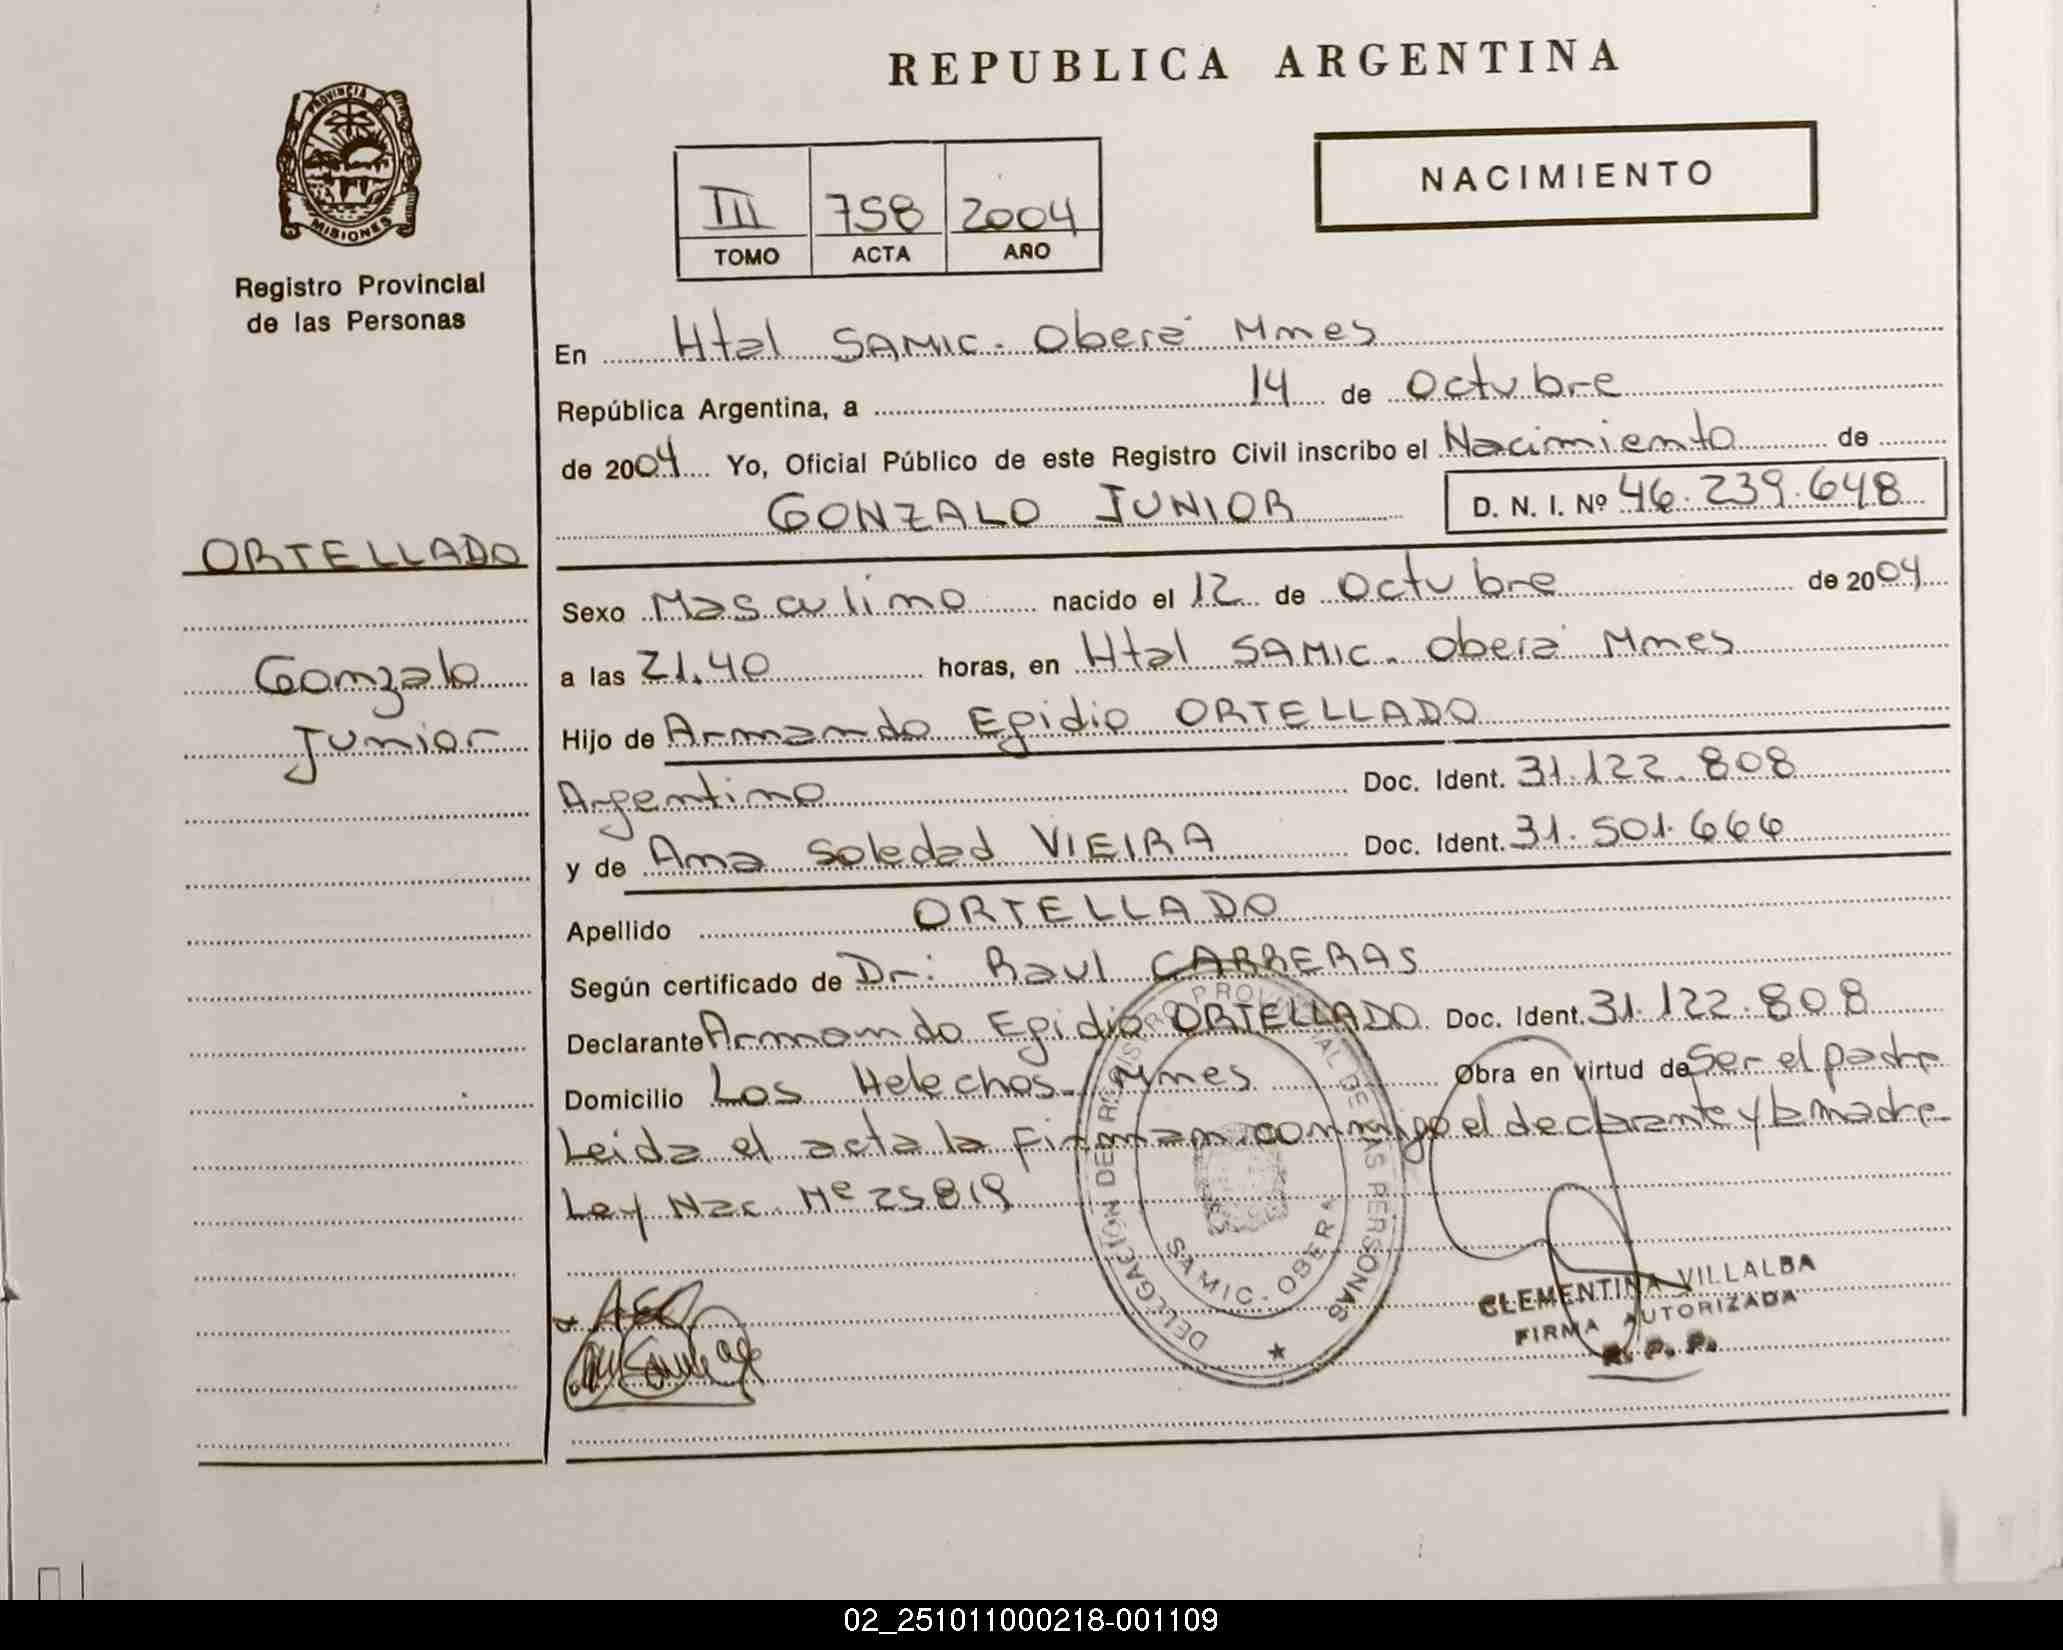 REPUBLICA ARGENTINA
PROVINCIA DE
MISIONES
Registro Provincial
de las Personas
NACIMIENTO
III 758 2004
TOMO ACTA AÑO
En Htal SAMIC. Oberá Mnes
República Argentina, a 14 de Octubre
de 2004 Yo, Oficial Público de este Registro Civil inscribo el Nacimiento de
GONZALO JUNIOR D. N. I. Nº 46.239.648
ORTELLADO
Gonzalo
Junior
Sexo Masculino nacido el 12 de Octubre de 2004
a las 21.40 horas, en Htal SAMIC. Oberá Mnes
Hijo de Armando Egidio ORTELLADO
Argentino Doc. Ident. 31.122.808
y de Ana Soledad VIEIRA Doc. Ident. 31.501.666
Apellido ORTELLADO
Según certificado de Dr: Raul CARRERAS
Declarante Armando Egidio ORTELLADO Doc. Ident. 31.122.808
Domicilio Los Helechos - Mnes Obra en virtud de Ser el padre
Leida el acta la firman conmigo el declarante y la madre
Ley Nac. Nº 25819
DELEGACIÓN DEL REGISTRO PROVINCIAL DE LAS PERSONAS
SAMIC - OBERA
CLEMENTINA VILLALBA
FIRMA AUTORIZADA
R. P. P.
02_251011000218-001109